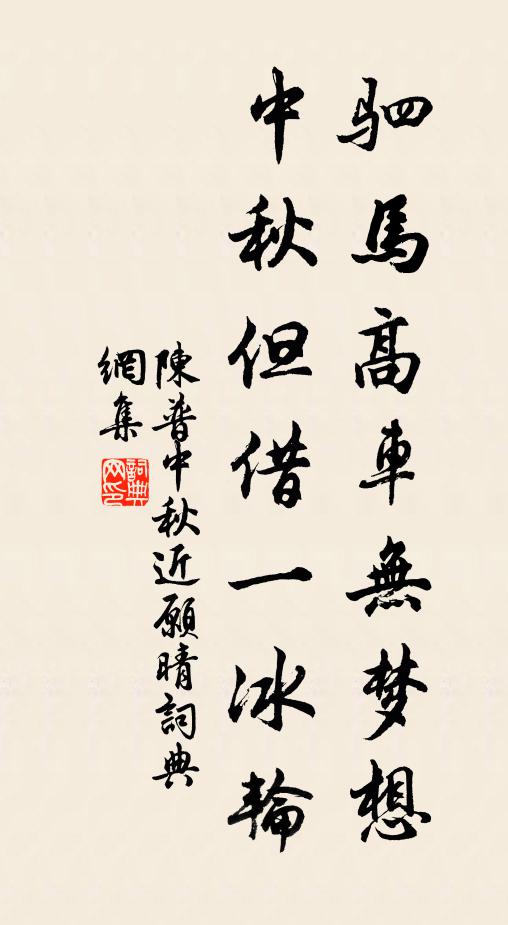 驷馬高車無梦想
中秋但借一冰輪
陳普中秋近願晴詞典
網集
詞典
网印